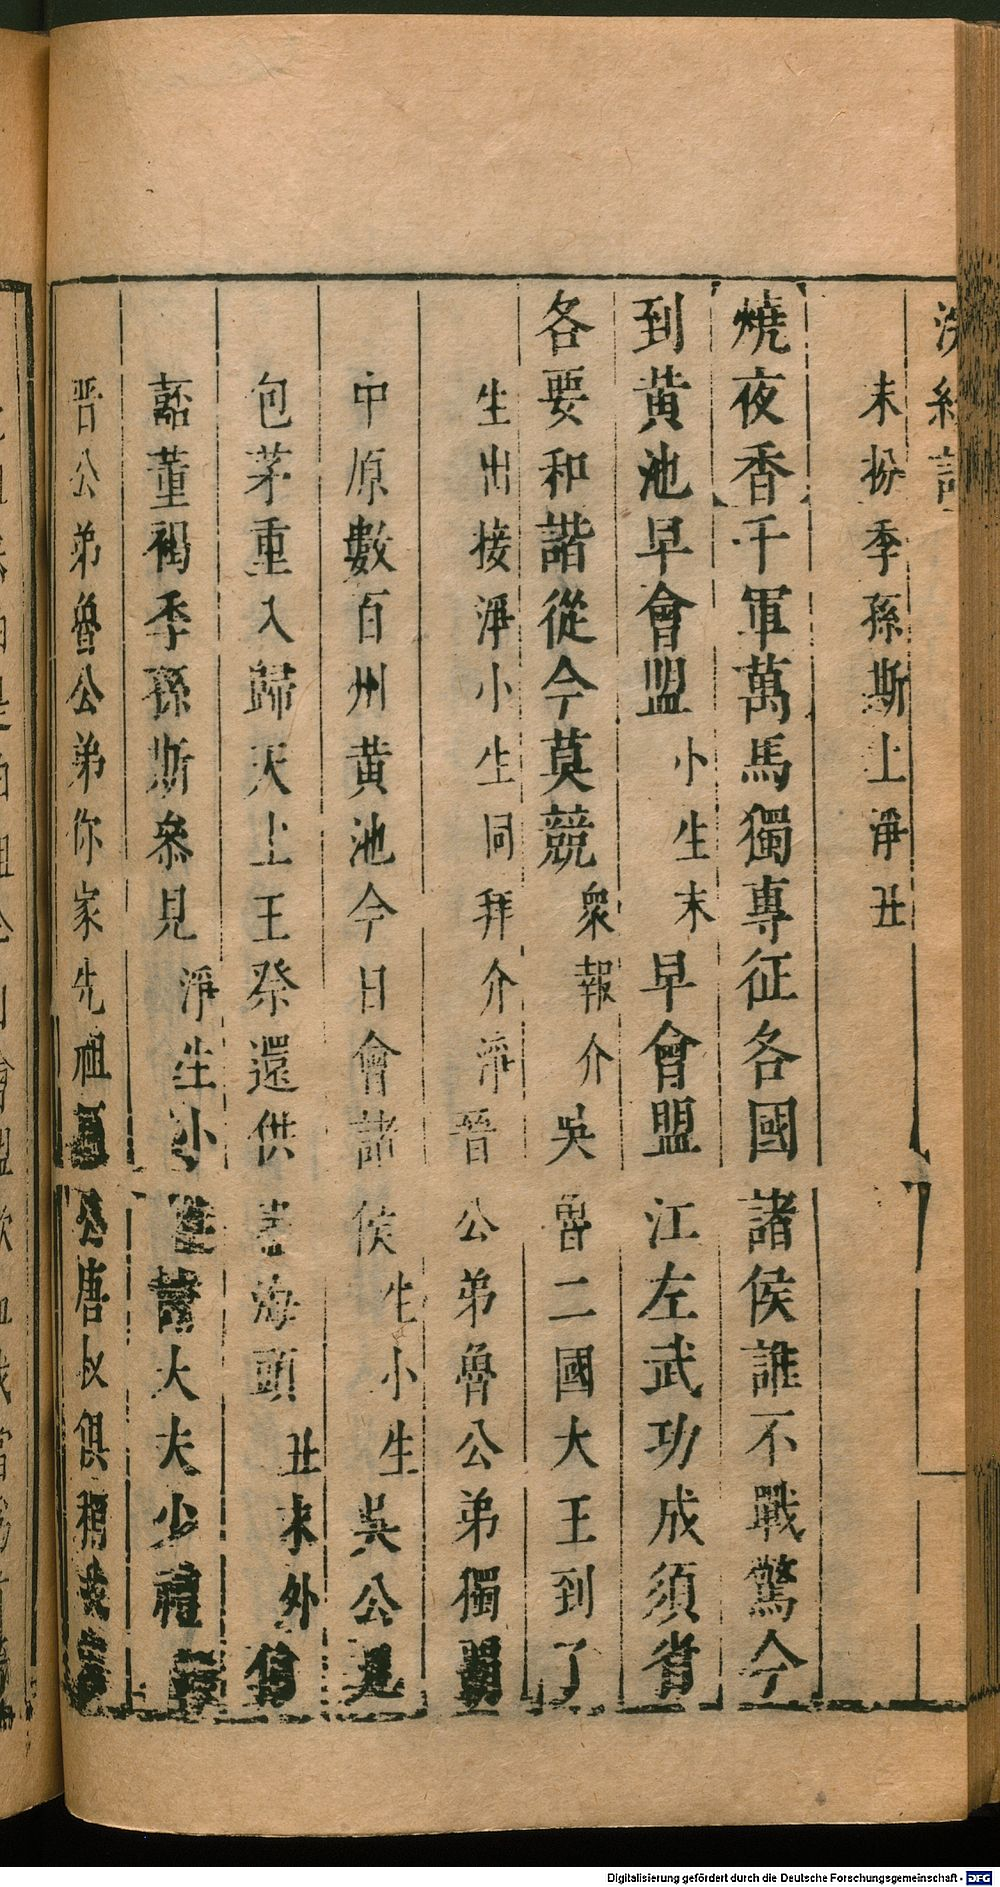 浣紗記
末扮季孫斯上淨丑
燒夜香千軍萬馬獨專征各國諸侯誰不戰驚今
到黃池早會盟小生末早會盟江左武功成須省
各要和諧從今莫競衆報介吳魯二國大王到了
生出接淨小生同拜介淨晉公弟魯公弟獨
中原數百州黃池今日會諸侯生小生吳公
包茅重入歸天上王祭還供海頭丑末外
嚭董褐季孫斯叅見淨生小大夫少禮
晉公弟魯公弟你家先祖公唐叔俱稱
Digitalisierung gefördert durch die Deutsche Forschungsgemeinschaft - DFG